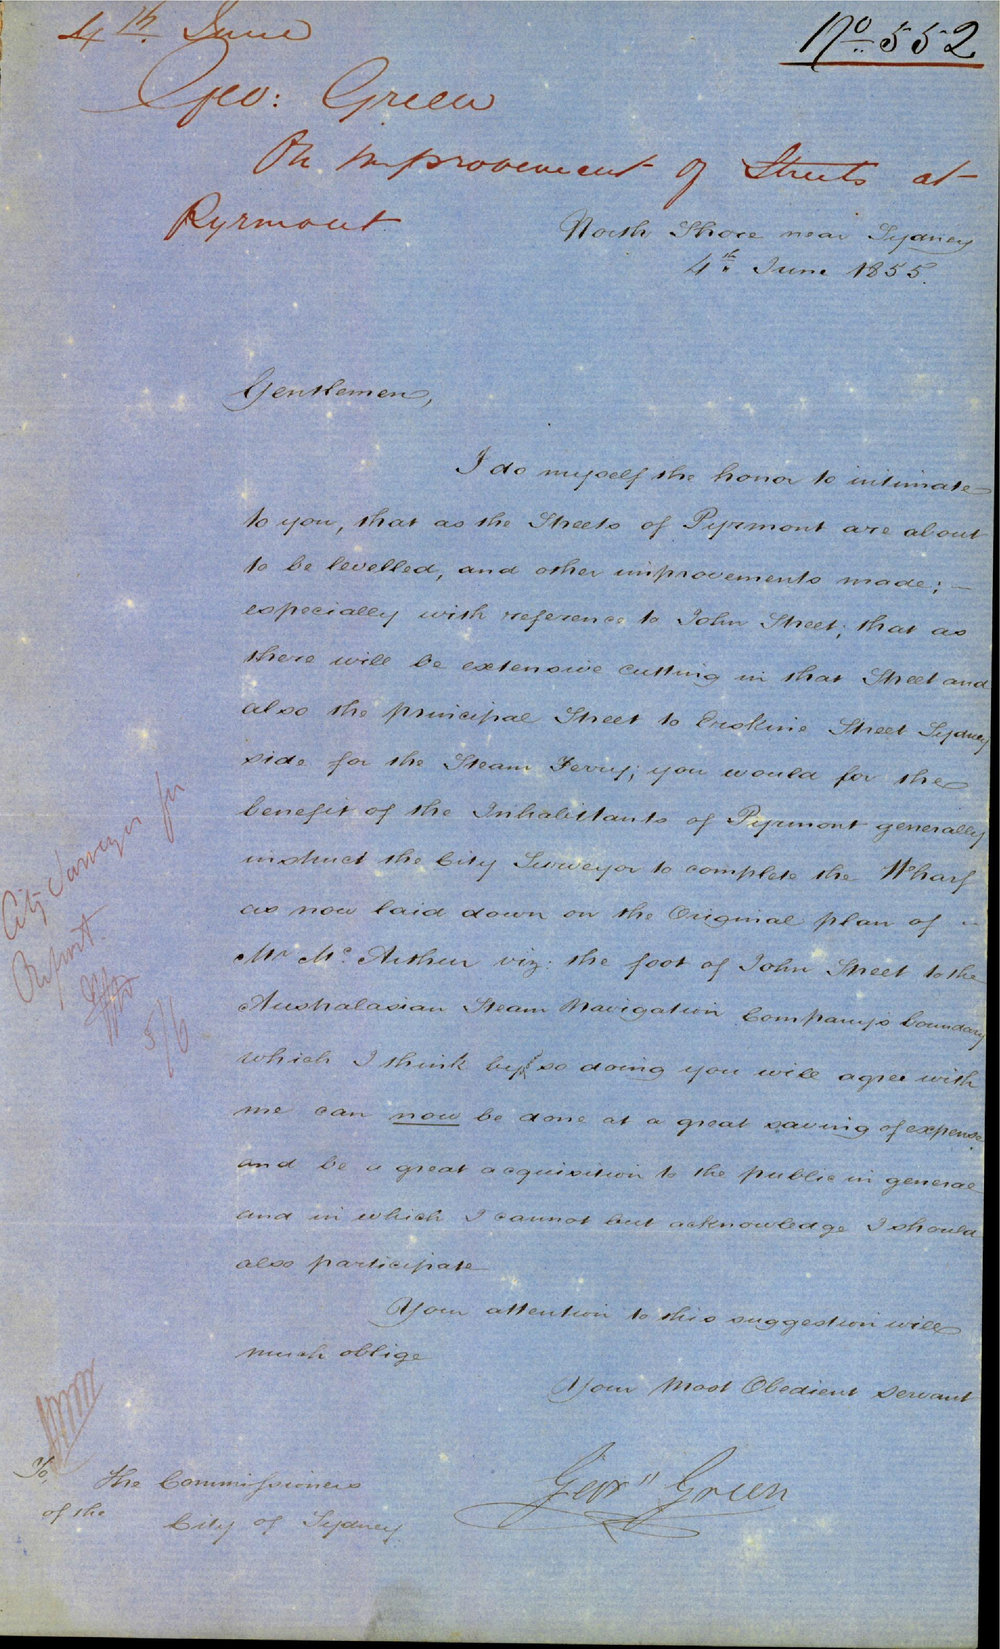 4th. June
No. 552
Geo: Green
On improvement of Streets at
Pyrmont
North Shore near Sydney
4th. June 1855.
Gentlemen,
I do myself the honor to intimate
to you, that as the Streets of Pyrmont are about
to be levelled, and other improvements made; —
especially with reference to John Street; that as
there will be extensive cutting in that Street and
also the principal Street to Erskine Street Sydney
side for the Steam Ferry; you would for the
benefit of the Inhabitants of Pyrmont generally
instruct the City Surveyor to complete the Wharf
as now laid down on the Original plan of
Mr Mc. Arthur viz: the foot of John Street to the
Australasian Steam Navigation Company's boundary
which I think by so doing you will agree with
me can now be done at a great saving of expense
and be a great acquisition to the public in general
and in which I cannot but acknowledge I should
also participate
Your attention to this suggestion will
much oblige
Your Most Obedient Servant
Geo" Green
To, The Commissioners
of the City of Sydney
City Surveyor for
Report.
5/6